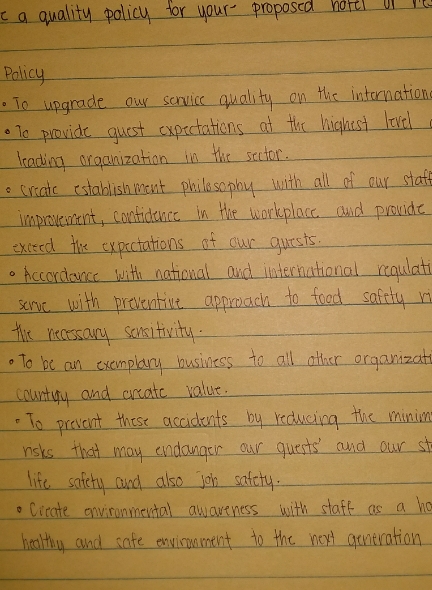 a quality policy for your proposed hotel or
Policy
• To upgrade our service quality on the
• To provide guest expectations at the highest level
leading organization in the sector.
• Create establishment philosophy with all of our staff
improvement, confidence in the workplace and provide
exceed the expectations of our guests.
• Accordance with national and international
serve with preventive approach to food safety
the necessary sensitivity.
• To be an exemplary business to all other
and create value.
• To prevent these accidents by reducing the
risks that may endanger our guests' and our
life safety and also job safety.
• Create environmental awareness with staff as a
healthy and safe environment to the next generation